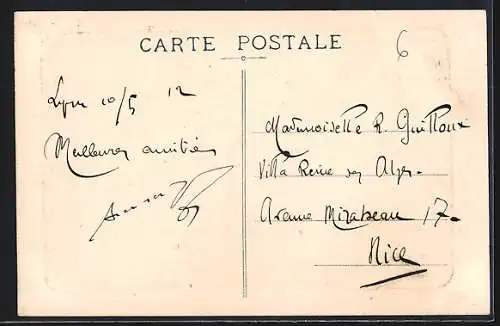 CARTE POSTALE
6
Lyon 10/5 12
Meilleures amitiés
Mademoiselle R. Guilloux
Villa Reine des Alpes.
Avenue Mirabeau 17.
Nice